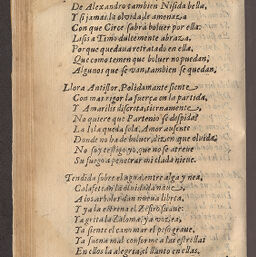 De Alexandro tambien Nisida bella,
Y si jamas la olvida, le amenaza
Con que Circe sabrà boluer por ella:
Lisis a Timo dulcemente abraza,
Porque quedaua retratado en ella,
Que como temen que boluer no puedan,
Algunos que se van, tambien se quedan.
Llora Antiflor, Polidamante siente
Con mas rigor la fuerça en la partida,
Y Amarilis discreta, tiernamente
No quiere que Partenio se despida
La Isla queda sola, Amor ausente
Donde no ha de boluer, diz en que oluida,
No soy testigo yo, que no se atreue
Su fuego a penetrar mi elada nieue.
Tendida sobre el agua entre alga y nea,
Calafetean la oluidada naue,
A los arboles dan nueua librea,
Y ya la estrena el Zefiro suaue:
Ya grita la Zaloma, ya vozea,
Ya siente el cañamar el peso graue,
Ya suena mal conforme a las estrellas
En ellos la alegria, el llanto en ellas.